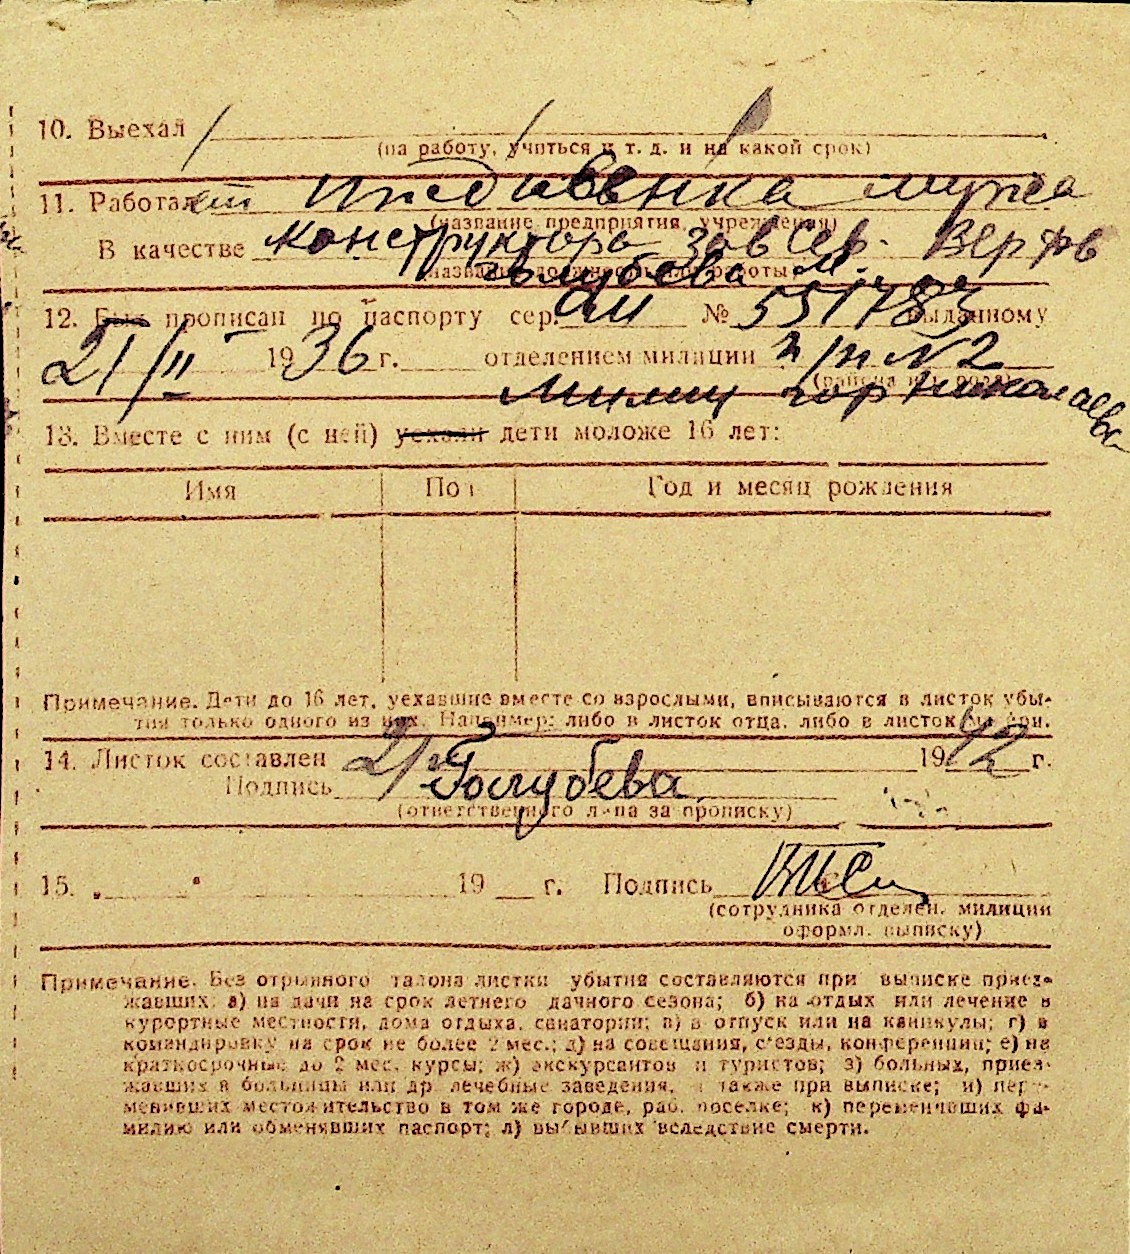 10. Выехал
(на работу, учиться и т. д. и на какой срок)
11. Работал иждивенка мужа
(название предприятия, учреждения)
В качестве конструктора зав Сев. Верфь
(название должности или работы)
Голубева М.
12. Был прописан по паспорту сер. № 551783 выданному
21/II 1936 г. отделением милиции № 2
(района или город)
Милиц гор Николаев
13. Вместе с ним (с ней) уехали дети моложе 16 лет:
Имя Пол Год и месяц рождения
Примечание. Дети до 16 лет, уехавшие вместе со взрослыми, вписываются в листок убы-
тия только одного из них. Например: либо в листок отца, либо в листок матери.
14. Листок составлен 21 1942 г.
Подпись Голубева
(ответственного лица за прописку)
15. „ " 19 г. Подпись
(сотрудника отделен. милиции
оформл. выписку)
Примечание. Без отрывного талона листки убытия составляются при выписке приез-
жавших: а) на дачи на срок летнего дачного сезона; б) на отдых или лечение в
курортные местности, дома отдыха, санатории; в) в отпуск или на каникулы; г) в
командировку на срок не более 2 мес.; д) на совещания, съезды, конференции; е) на
краткосрочные до 2 мес. курсы; ж) экскурсантов и туристов; з) больных, приез-
жавших в больницы или др. лечебные заведения, а также при выписке; и) пере-
менивших местожительство в том же городе, раб. поселке; к) переменивших фа-
милию или обменявших паспорт; л) выбывших вследствие смерти.